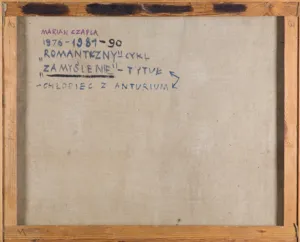 MARIAN CZAPLA
1976-1981-90
„ROMANTYCZNY" CYKL
„ZAMYŚLENIE" - TYTUŁ
- CHŁOPIEC Z ANTURIUM